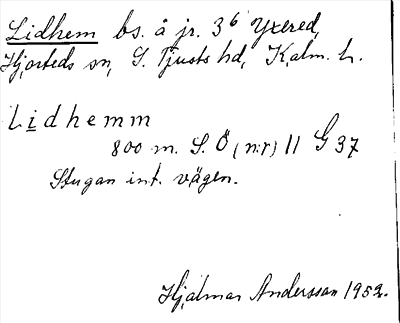 Lidhem bs. å jr. 3⁶ Yxered,
Hjorteds sn, S. Tjusts hd, Kalm. L.
Lidhemm
800 m. S. Ö (n:r) 11 G 37
Stugan int. vägen.
Hjalmar Andersson 1952.